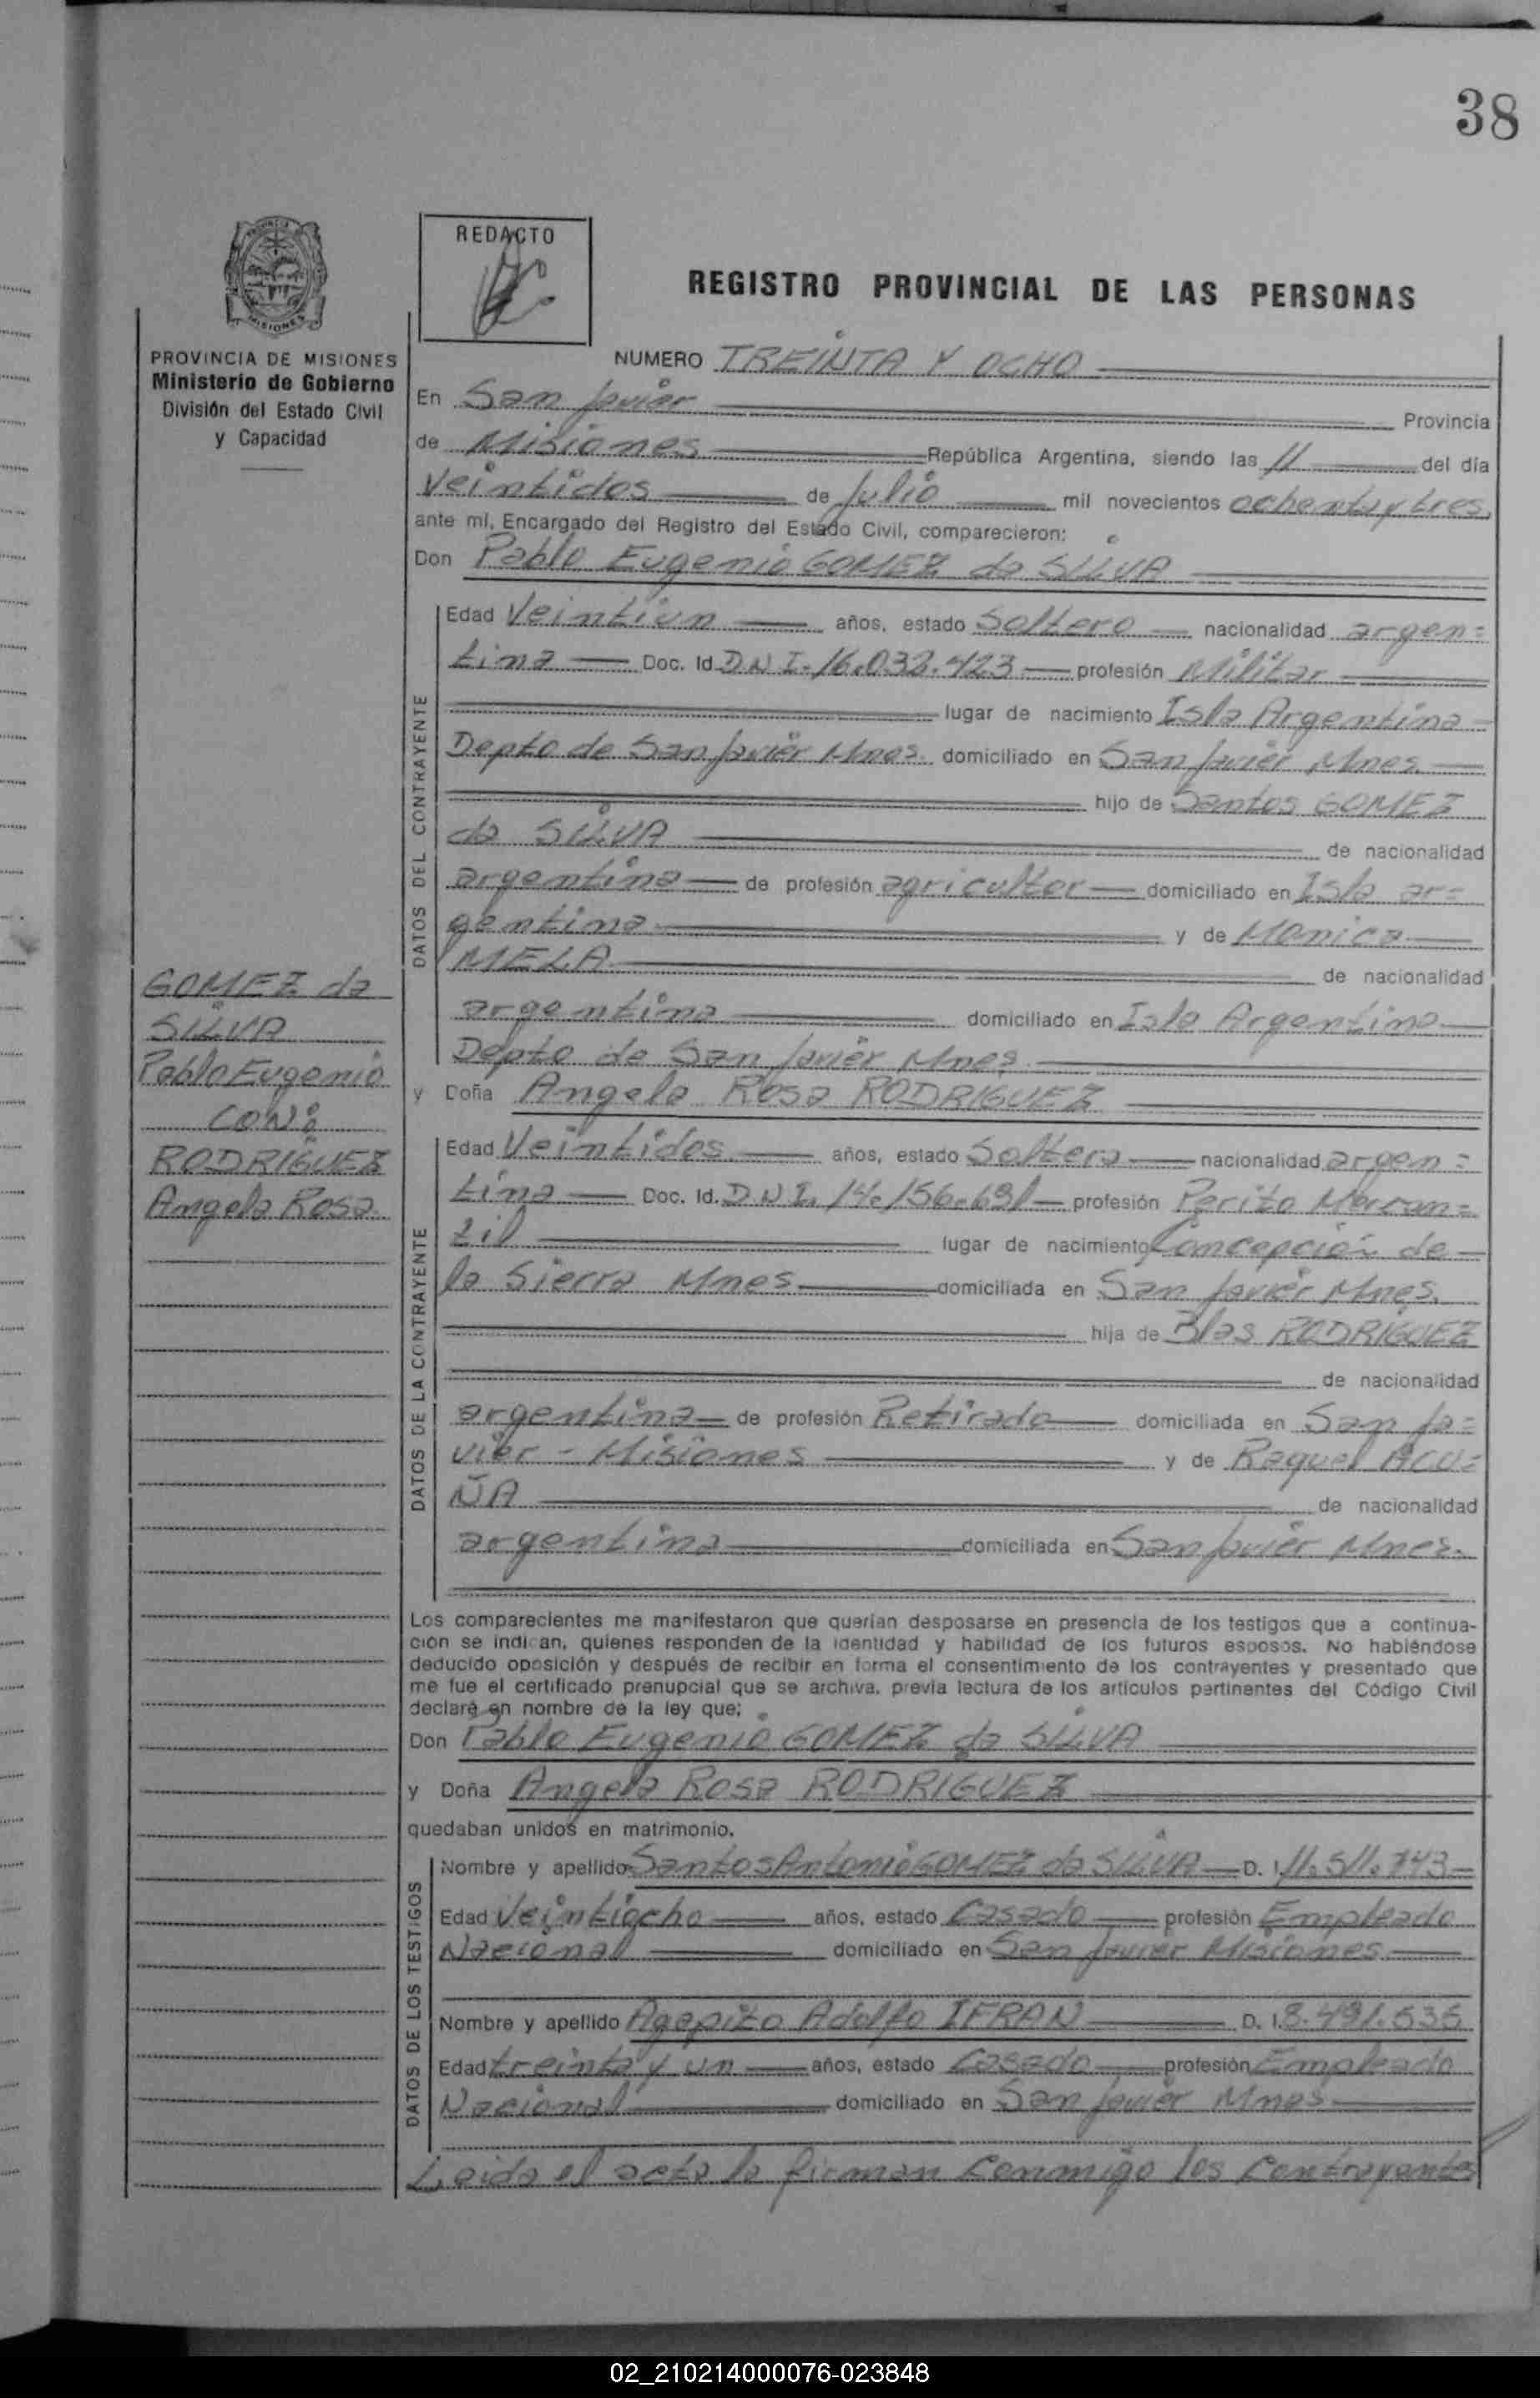 38
REDACTO
REGISTRO PROVINCIAL DE LAS PERSONAS
MISIONES
PROVINCIA DE MISIONES
Ministerio de Gobierno
División del Estado Civil
y Capacidad
NUMERO TREINTA Y OCHO
En San Javier Provincia
de Misiones República Argentina, siendo las 11 del día
Veintidos de Julio mil novecientos ochentaytres
ante mí, Encargado del Registro del Estado Civil, comparecieron:
Don Pablo Eugenio GOMEZ da SILVA
DATOS DEL CONTRAYENTE
Edad Veintiun años, estado Soltero nacionalidad argen=
tina Doc. Id. D.N.I. 16.032.423 profesión Militar
lugar de nacimiento Isla Argentina
Depto de San Javier Mnes. domiciliado en San Javier Mnes.
hijo de Santos GOMEZ
da SILVA de nacionalidad
argentina de profesión agricultor domiciliado en Isla ar=
gentina y de Monica
MELA de nacionalidad
argentina domiciliado en Isla Argentina
Depto de San Javier Mnes.
GOMEZ da
SILVA
Pablo Eugenio
CON:
RODRIGUEZ
Angela Rosa
y Doña Angela Rosa RODRIGUEZ
DATOS DE LA CONTRAYENTE
Edad Veintidos años, estado Soltera nacionalidad argen=
tina Doc. Id. D.N.I. 14.156.631 profesión Perito Mercan=
til lugar de nacimiento Concepción de
la Sierra Mnes domiciliada en San Javier Mnes.
hija de Blas RODRIGUEZ
de nacionalidad
argentina de profesión Retirado domiciliada en San Ja=
vier - Misiones y de Raquel ACU=
ÑA de nacionalidad
argentina domiciliada en San Javier Mnes.
Los comparecientes me manifestaron que querían desposarse en presencia de los testigos que a continua-
ción se indican, quienes responden de la identidad y habilidad de los futuros esposos. No habiéndose
deducido oposición y después de recibir en forma el consentimiento de los contrayentes y presentado que
me fue el certificado prenupcial que se archiva, previa lectura de los artículos pertinentes del Código Civil
declaré en nombre de la ley que;
Don Pablo Eugenio GOMEZ da SILVA
y Doña Angela Rosa RODRIGUEZ
quedaban unidos en matrimonio.
DATOS DE LOS TESTIGOS
Nombre y apellido Santos Antonio GOMEZ da SILVA D. I. 11.511.743
Edad Veintiocho años, estado Casado profesión Empleado
Nacional domiciliado en San Javier Misiones
Nombre y apellido Agapito Adolfo IFRAN D. I. 8.491.535
Edad treinta y un años, estado Casado profesión Empleado
Nacional domiciliado en San Javier Mnes
Leida el acta la firman conmigo los contrayentes
02_210214000076-023848